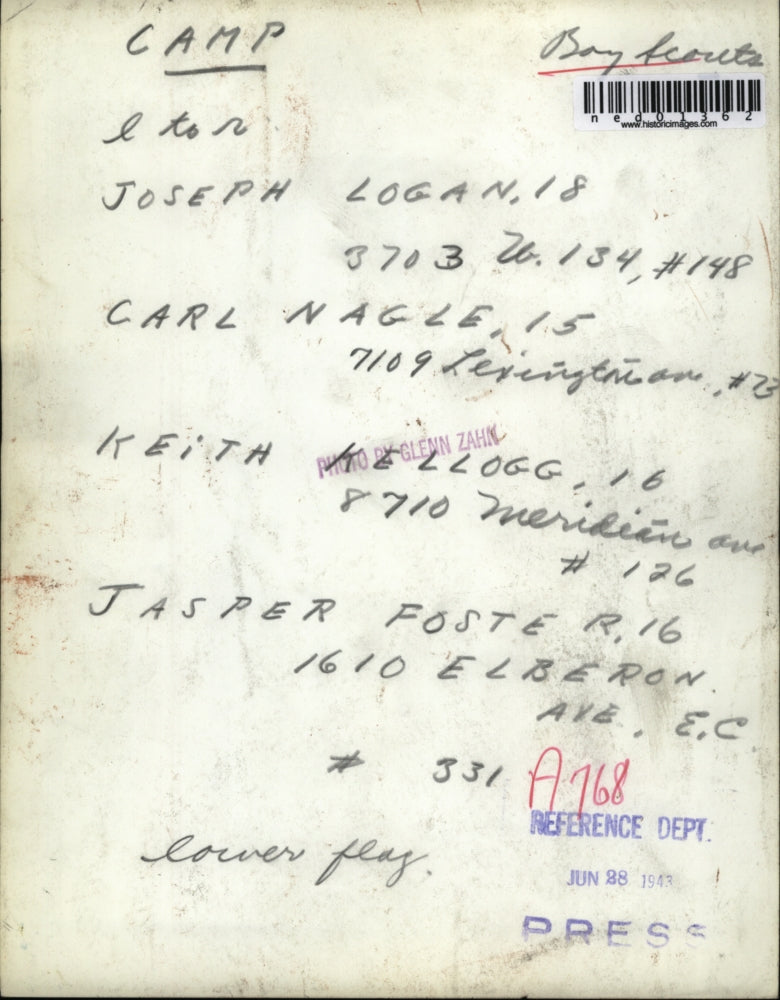 CAMP
Boy Scouts
ned01362
www.historicimages.com
l to r
JOSEPH LOGAN, 18
3703 W. 134, #148
CARL NAGLE, 15
7109 Lexington ave, #73
KEiTH KELLOGG, 16
PHOTO BY GLENN ZAHN
8710 Meridian ave
# 126
JASPER FOSTER, 16
1610 ELBERON
AVE, E.C
# 331
A768
REFERENCE DEPT.
lower flag.
JUN 28 1943
PRESS